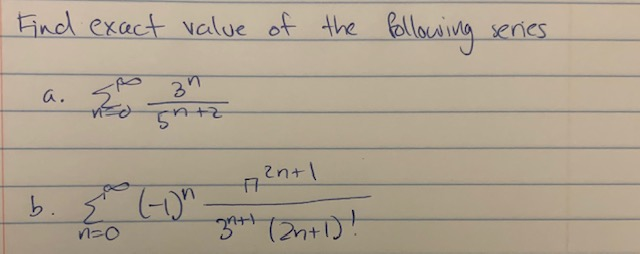 Find exact value of the following series
a. ∑_{n=0}^{∞} 3^n / 5^{n+2}
b. ∑_{n=0}^{∞} (-1)^n π^{2n+1} / 3^{n+1} (2n+1)!